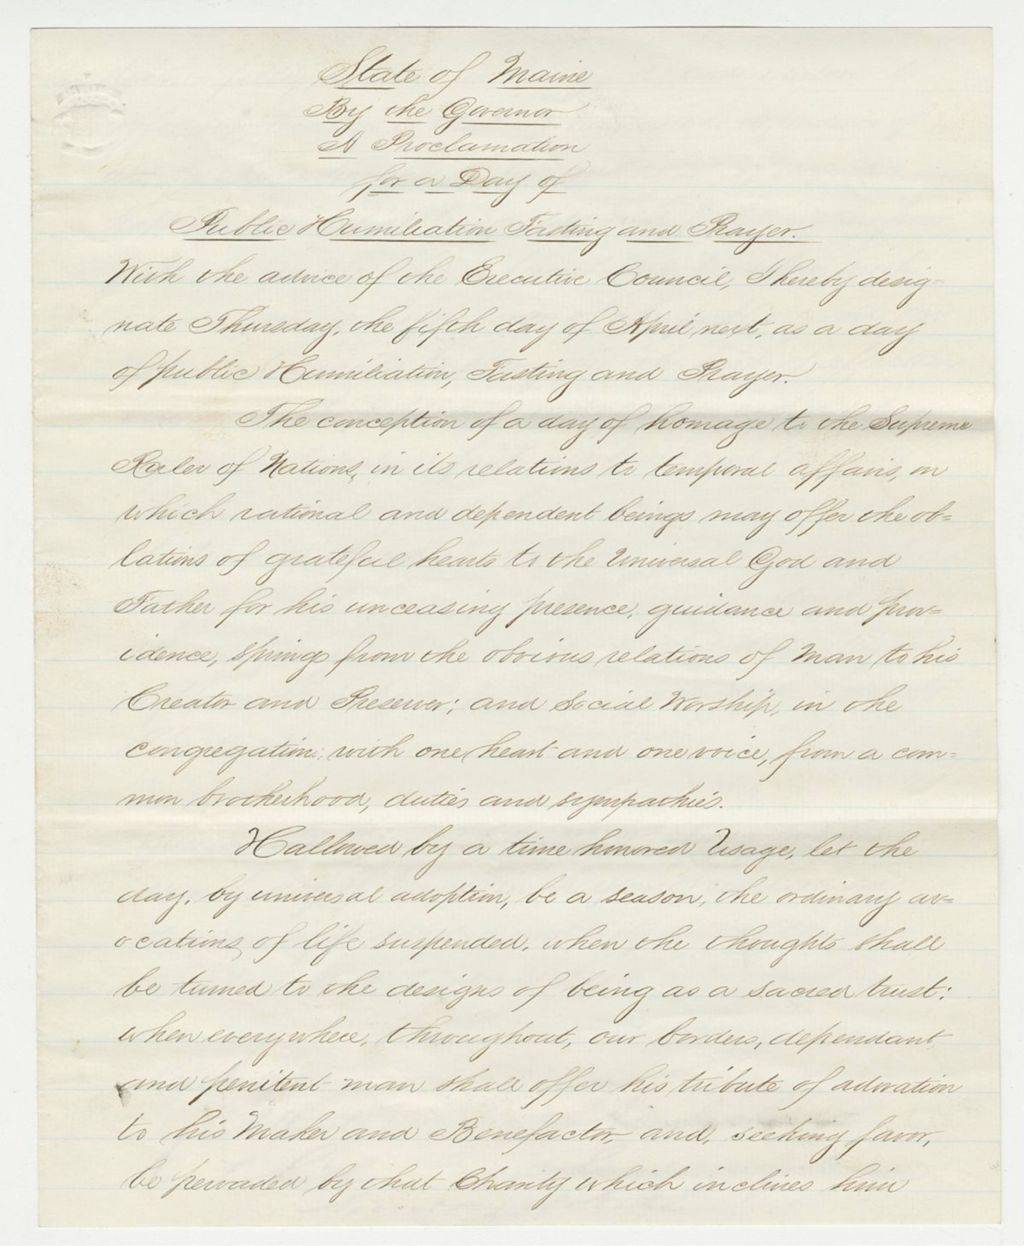 State of Maine
By the Governor
A Proclamation
for a Day of
Public Humiliation Fasting and Prayer.
With the advice of the Executive Council, I hereby desig-
nate Thursday, the fifth day of April next, as a day
of public Humiliation, Fasting and Prayer.
The conception of a day of homage to the Supreme
Ruler of Nations, in its relations to temporal affairs, on
which rational and dependent beings may offer the ob=
lations of grateful hearts to the Universal God and
Father for his unceasing presence, guidance and prov=
idence, springs from the obvious relations of Man to his
Creator and Preserver; and Social Worship, in the
congregation, with one heart and one voice, from a com=
mon brotherhood, duties and sympathies.
Hallowed by a time honored Usage, let the
day, by universal adoption, be a season, the ordinary av=
ocations of life suspended, when the thoughts shall
be turned to the designs of being as a sacred trust:
when everywhere, throughout, our borders, dependant
and penitent man shall offer his tribute of adoration
to his Maker and Benefactor, and, seeking favor,
be pervaded by that Charity which inclines him